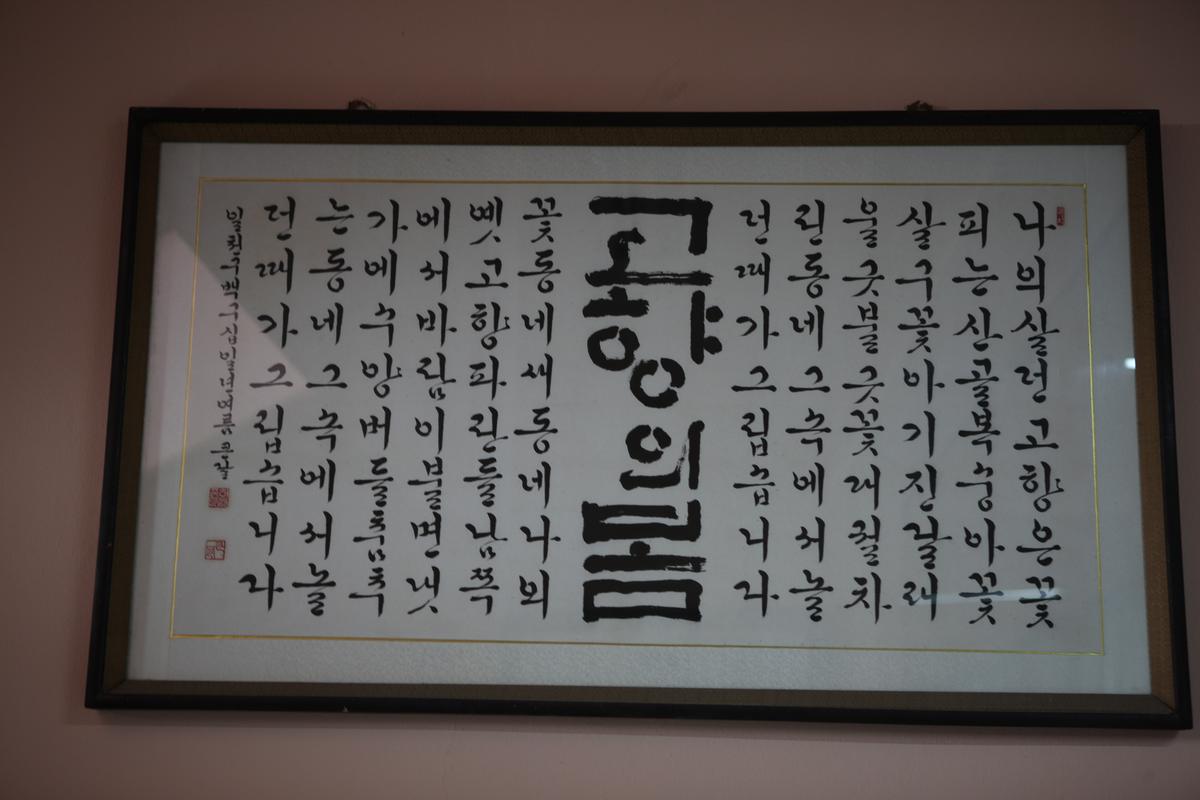 나의살던고향은꽃
피는산골복숭아꽃
살구꽃아기진달래
울긋불긋꽃대궐차
린동네그속에서놀
던때가그립습니다
고향의봄
꽃동네새동네나의
옛고향파란들남쪽
에서바람이불면냇
가에수양버들춤추
는동네그속에서놀
던때가그립습니다
일천구백구십일년여름